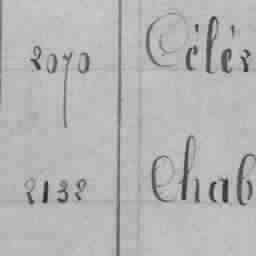 2070 Célés
2132 Chab